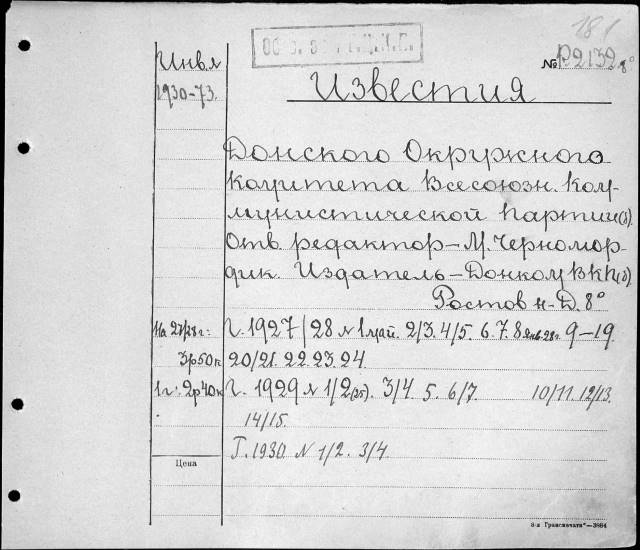 181
Инв. №
1930-73.
№ Р2132 8°
Известия
Донского Окружного
Комитета Всесоюзн. Ком-
мунистической партии(б).
Отв. редактор — М. Черномор-
дик. Издатель — Донком ВКП(б)
Ростов н-Д. 8°
На 27/28 г: Г. 1927/28 № 1 май. 2/3. 4/5. 6. 7. 8 янв. 28 г. 9–19.
3р50к 20/21. 22. 23. 24.
1 г: 2р40к Г. 1929 № 1/2 (25). 3/4. 5. 6/7. 10/11. 12/13.
14/15.
Г. 1930. № 1/2. 3/4.
Цена
3-я Транспечати"—3864